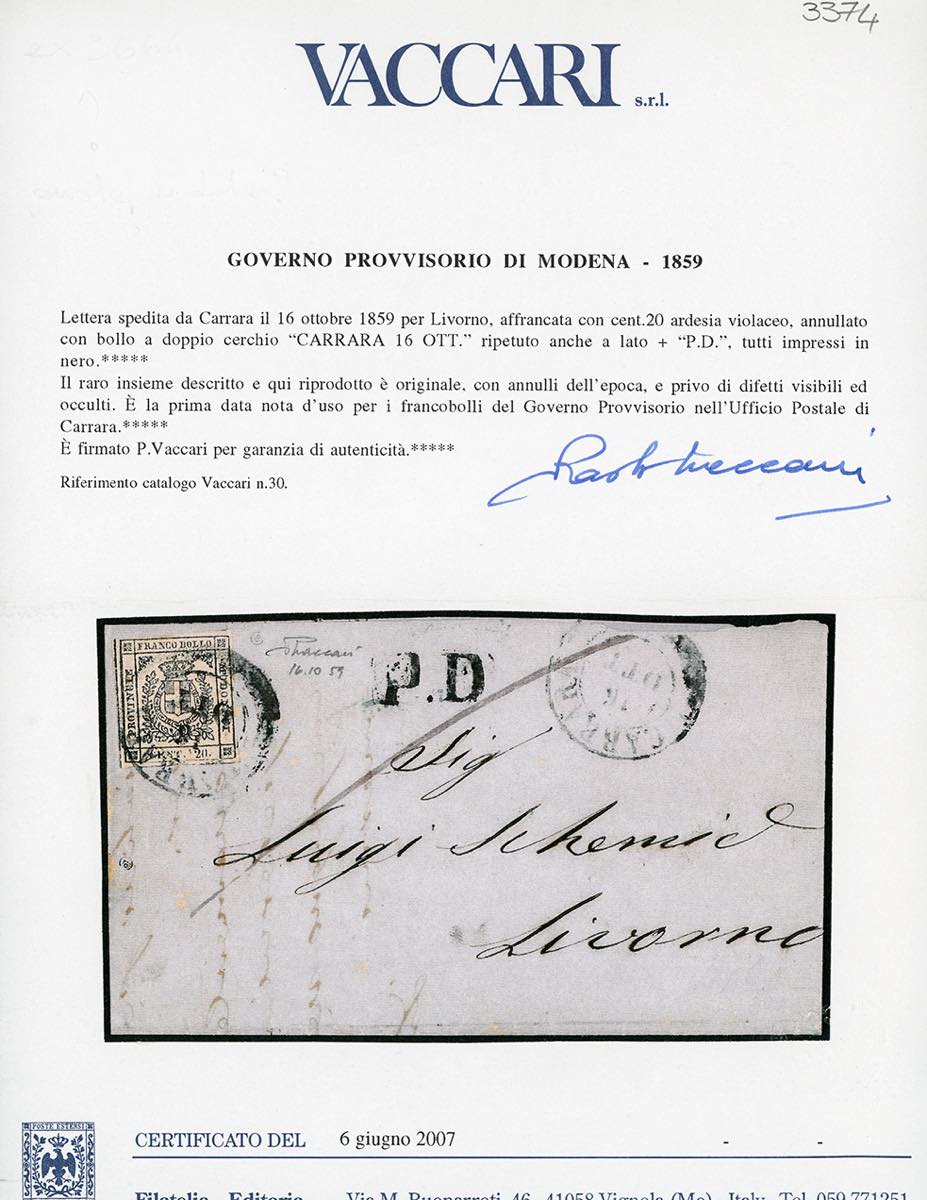 3374
VACCARI s.r.l.
GOVERNO PROVVISORIO DI MODENA - 1859
Lettera spedita da Carrara il 16 ottobre 1859 per Livorno, affrancata con cent.20 ardesia violaceo, annullato
con bollo a doppio cerchio “CARRARA 16 OTT.” ripetuto anche a lato + “P.D.”, tutti impressi in
nero.*****
Il raro insieme descritto e qui riprodotto è originale, con annulli dell'epoca, e privo di difetti visibili ed
occulti. È la prima data nota d'uso per i francobolli del Governo Provvisorio nell'Ufficio Postale di
Carrara.*****
È firmato P.Vaccari per garanzia di autenticità.*****
Paolo Vaccari
Riferimento catalogo Vaccari n.30.
FRANCO BOLLO
PROVINCIE
MODONESI
CENT. 20.
PVaccari
16.10 59
P.D
CARRARA
16
OTT
Sig
Luigi Schemid
Livorno
POSTE ESTENSI
CERTIFICATO DEL 6 giugno 2007 - -
Filatelia Editoria Via M. Buonarroti, 46 41058 Vignola (Mo) Italy Tel. 059.771251